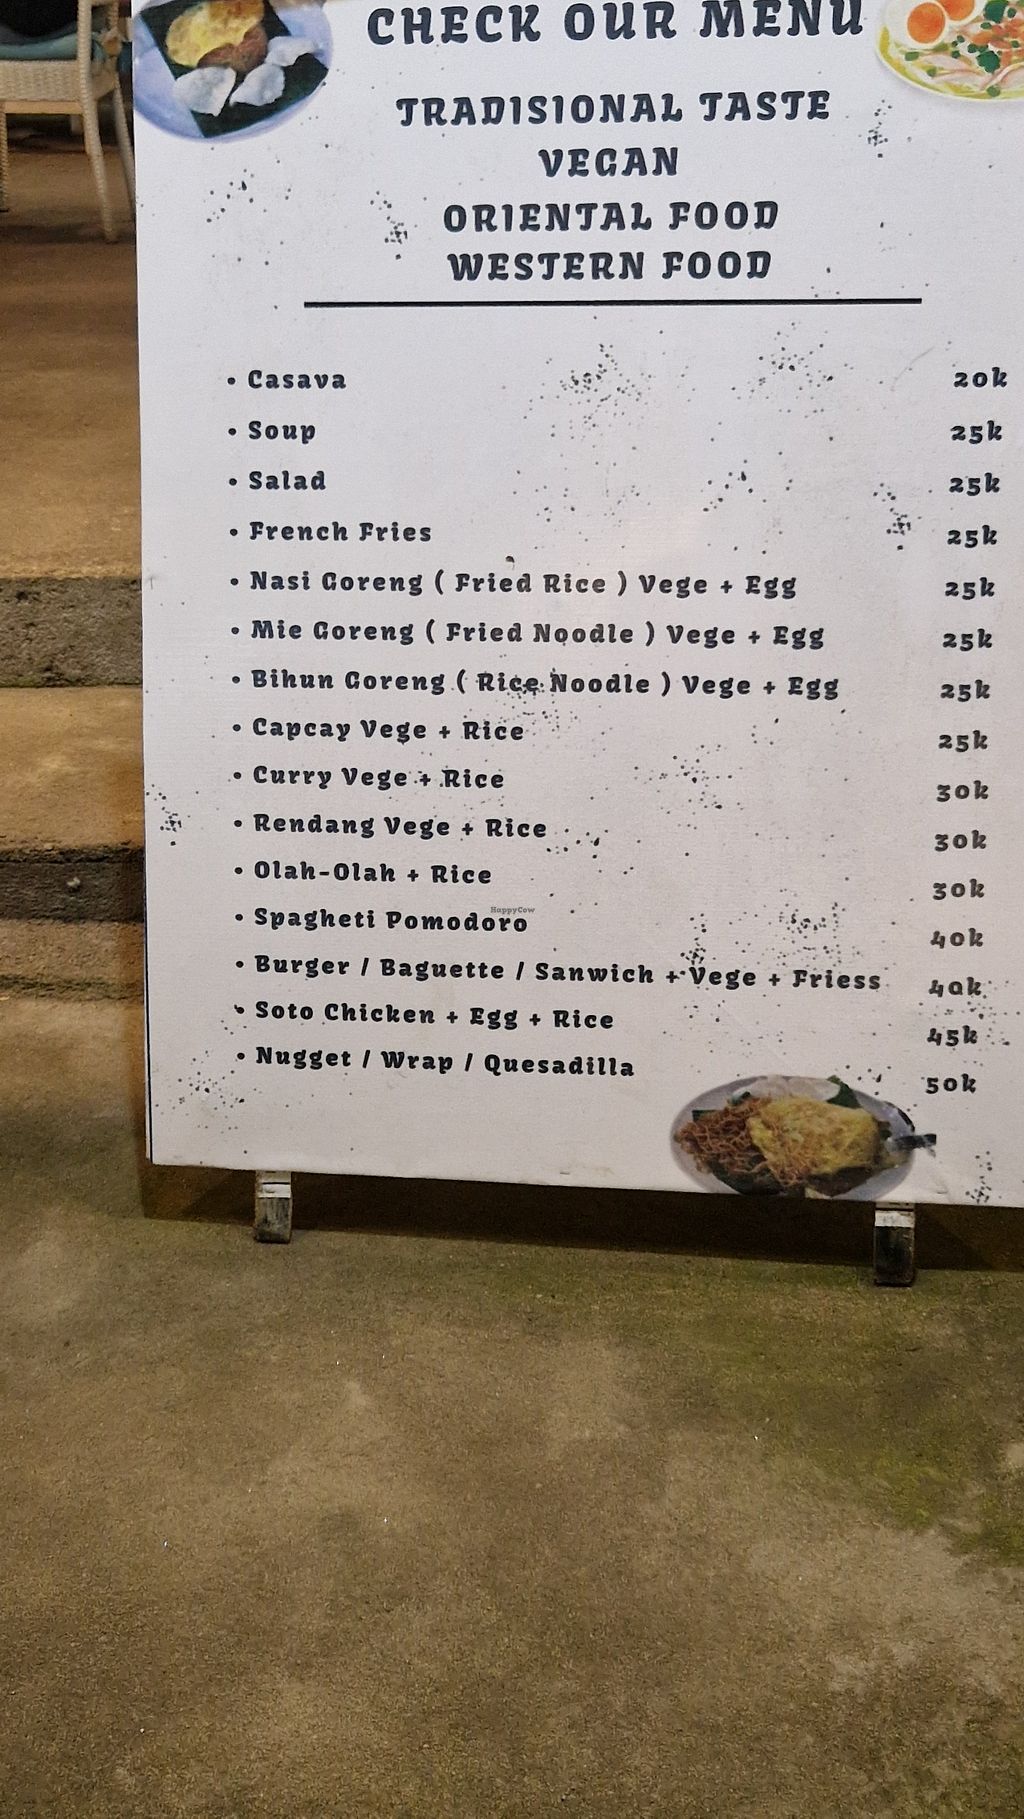 CHECK OUR MENU
TRADISIONAL TASTE
VEGAN
ORIENTAL FOOD
WESTERN FOOD
• Casava 20k
• Soup 25k
• Salad 25k
• French Fries 25k
• Nasi Goreng ( Fried Rice ) Vege + Egg 25k
• Mie Goreng ( Fried Noodle ) Vege + Egg 25k
• Bihun Goreng ( Rice Noodle ) Vege + Egg 25k
• Capcay Vege + Rice 25k
• Curry Vege + Rice 30k
• Rendang Vege + Rice 30k
• Olah-Olah + Rice 30k
• Spagheti Pomodoro 40k
• Burger / Baguette / Sanwich + Vege + Friess 40k
• Soto Chicken + Egg + Rice 45k
• Nugget / Wrap / Quesadilla 50k
HappyCow